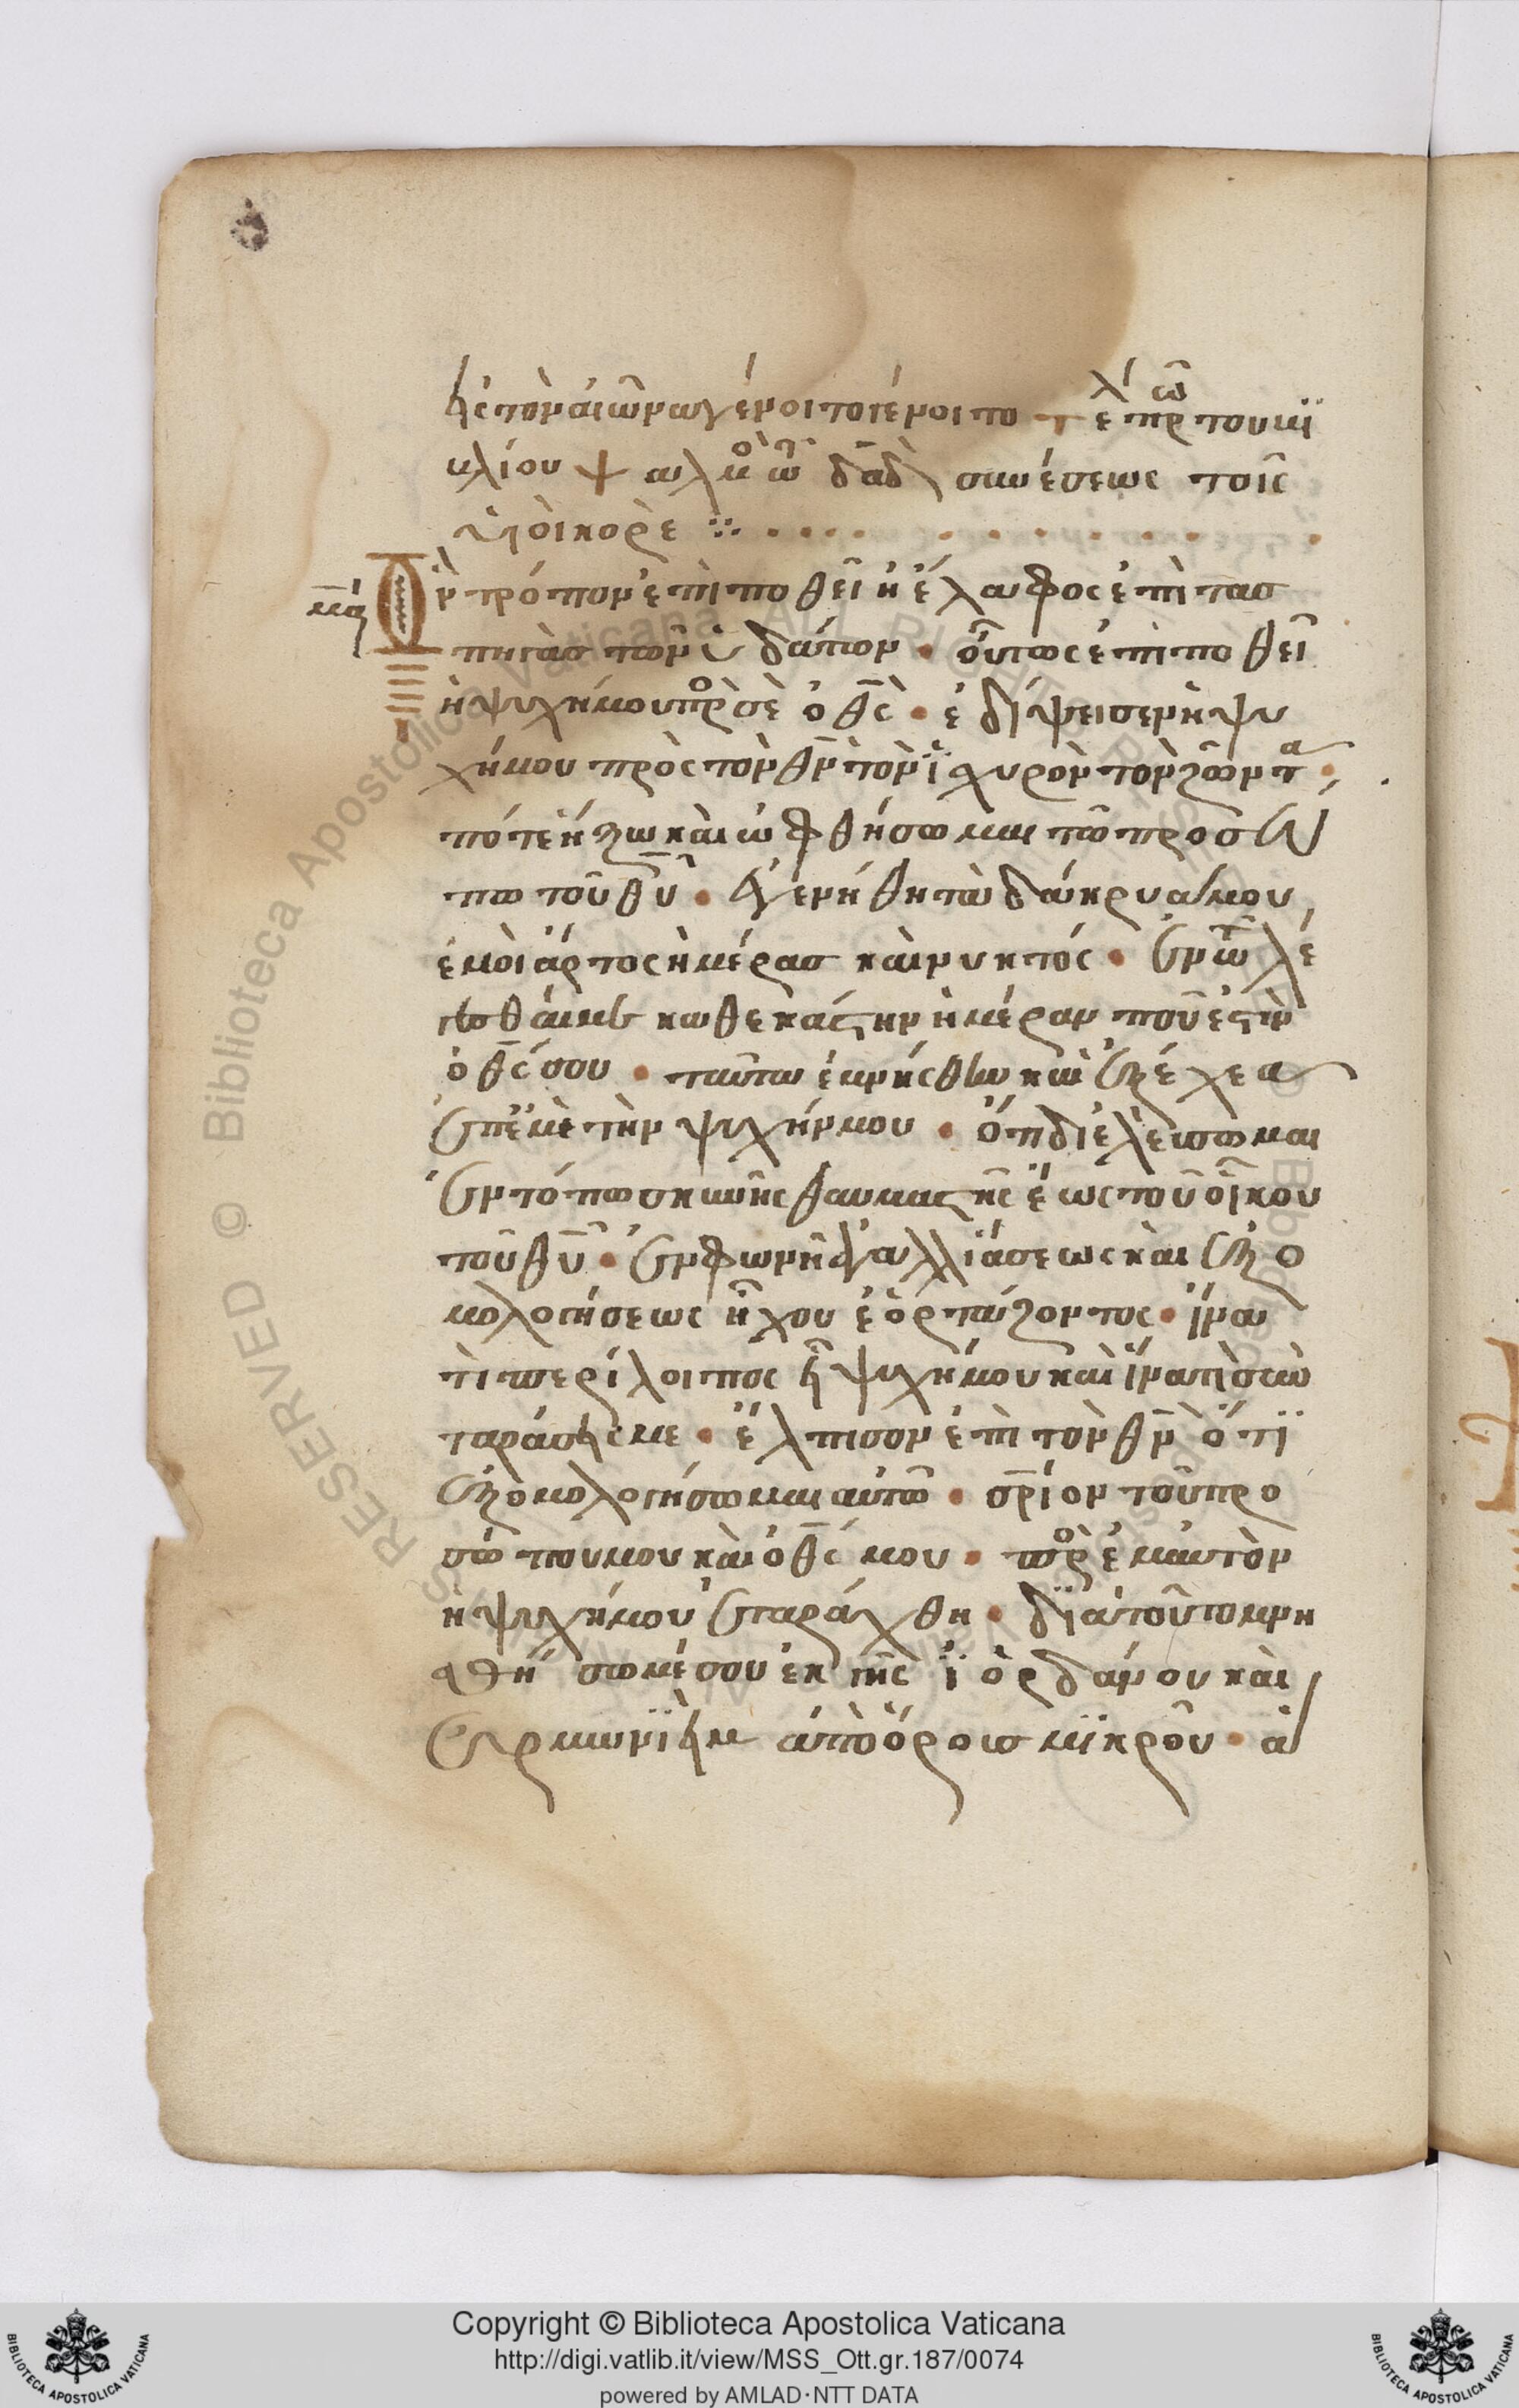 εἰς τὸν αἰῶνα γένοιτο γένοιτο τέλ πρώ τοῦ κϊ
κλίου ψαλμὸς τῶ δᾱδ συνέσεως τοῖς
υἱοῖ κορὲ
μᾱ Ὃν τρόπον ἐπιποθεῖ ἡ ἔλαφος ἐπὶ τὰσ
πηγὰσ τῶν ὑδάτων · οὕτως ἐπιποθεῖ
ἡ ψυχή μου πρὸσὲ ὁ θς̄ · ἐδίψεισεν ἡ ψυ
χή μου πρὸς τὸν θν̄ τὸν ἰσχυρὸν τὸν ζῶντα ·
πότε ἥξω καὶ ὠφθήσωμαι τῶ προσώ
πω τοῦ θῡ · ἐγενήθη τὰ δάκρυα μου
ἐμοὶ ἄρτος ἡμέρασ καὶ νυκτός · ἐν τῶ λέ
γεσθαί με καθεκάστην ἡμέραν ποῦ ἐστὶν
ὁ θς̄ σου · ταῦτα ἐμνήσθην καὶ ἐξέχεα
ἐπεμὲ τὴν ψυχήν μου · ὅτι διελεύσωμαι
ἐν τόπω σκηνῆς θαυμαστῆς ἕως τοῦ οἴκου
τοῦ θῡ · ἐν φωνῆ ἀγαλλιάσεως καὶ ἐξο
μολογήσεως ἤχου ἑορτάζοντος · ἵνα
τὶ περίλοιπος εἶ ψυχή μου καὶ ἱνατὶ σὺ
ταράσεις με · ἔλπισον ἐπὶ τὸν θν̄ ὅτϊ
ἐξομολογήσωμαι αὐτῶ · σρ̄ίον τοῦ προ
σώπου μου καὶ ὁ θς̄ μου · πρὸς ἐμαυτὸν
ἡ ψυχή μου ἐταράχθη · διὰ τοῦτο μνη
σθήσωμέ σου ἐκ γῆς ϊορδάνου καὶ
ἐρμωνϊεὶμ ἀπὸ ὄρουσ μϊκροῦ · ἄ
Copyright © Biblioteca Apostolica Vaticana
http://digi.vatlib.it/view/MSS_Ott.gr.187/0074
powered by AMLAD·NTT DATA